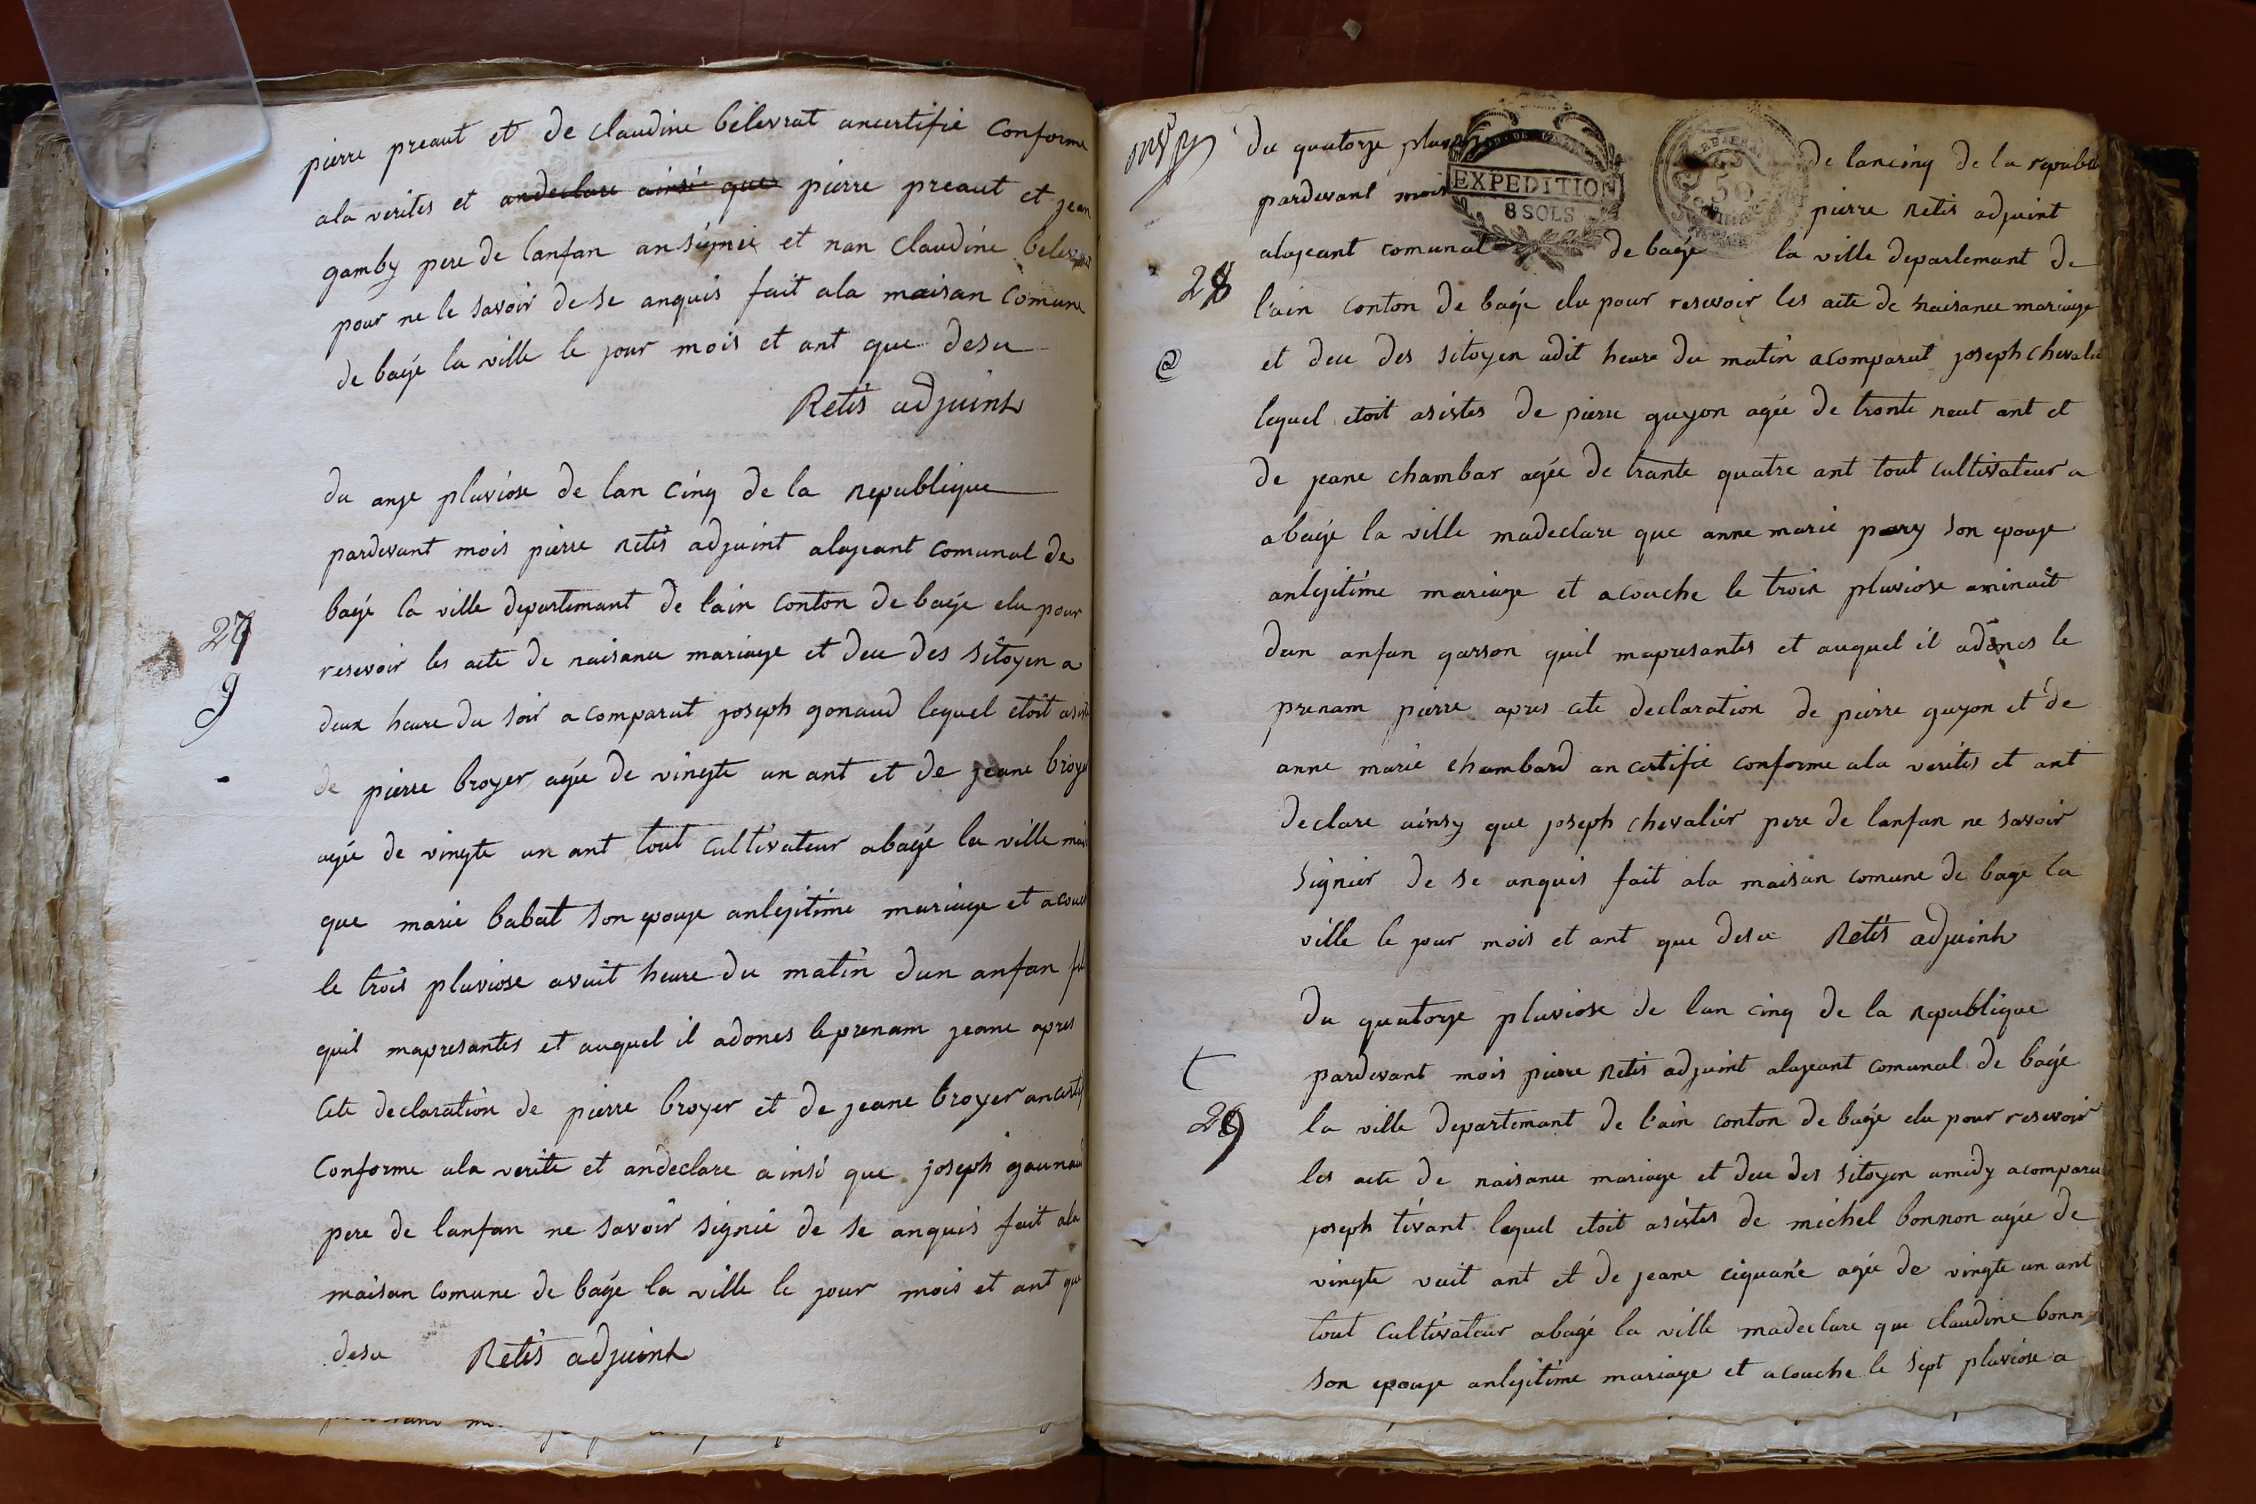 pierre preaut et de claudine belevrat ancertifie Conforme
ala verites et andeclare ainsi que pierre preaut et jean
gamby pere de lanfan ansignié et nan Claudine
pour ne le savoir de se anquis fait ala maisan Comune
de bagé la ville le jour mois et ant que desu
Retis adjuint
du anze pluviose de lan cinq de la republique
pardevant mois pierre retis adjuint alajeant comunal de
bagé la ville departemant de lain conton de bagé elu pour
27
resevoir les acte de naisance mariage et dece des sitoyen a
g
deux heure du soir acomparut joseph gonaud lequel etoit
de pierre broyer agée de vingte un ant et de jeane
agée de vingte un ant tout cultivateur abagé la ville
que marie babat son epouze anlejitime mariage et
le trois pluviose avuit heure du matin dun anfan
quil mapresantes et auquel il adones leprenam jeane apres
Cete declaration de pierre broyer et de jeane broyer
Conforme ala verite et andeclare ainsi que joseph
pere de lanfan ne savoir signié de se anquis fait ala
maisan comune de bagé la ville le jour mois et ant que
desu Retis adjuint
du quatorze de lancinq de la
EXPEDITION
8 SOLS
50
pardevant mois pierre retis adjuint
alajeant comunal de bagé la ville departemant de
28
lain conton de bagé elu pour resevoir les acte de naisance mariage
@
et dece des sitoyen adit heure du matin acomparut joseph
lequel etoit asistes de pierre guyon agée de tronte neut ant et
de jeane chambar agée de trante quatre ant tout cultivateur a
abagé la ville madeclare que anne marie pery son epouze
anlejitime mariage et acouche le trois pluviose aminuit
dun anfan garson quil mapresantes et auquel il adones le
prenam pierre apres cete declaration de pierre guyon et de
anne marie chambard ancertifie conforme ala verites et ant
declare ainsy que joseph chevalier pere de lanfan ne savoir
signier de se anquis fait ala maisan comune de bagé la
ville le jour mois et ant que desu Retis adjuint
du quatorze pluviose de lan cinq de la republique
t
pardevant mois pierre retis adjuint alajeant comunal de bagé
29
la ville departemant de lain conton de bagé elu pour resevoir
les acte de naisance mariage et dece des sitoyen amidy
joseph tivant lequel etoit asistes de michel bonnon agée de
vingte vuit ant et de jeane agée de vingte un ant
tout cultivateur abagé la ville madeclare que claudine
son epouze anlejitime mariage et acouche le sept pluviose a